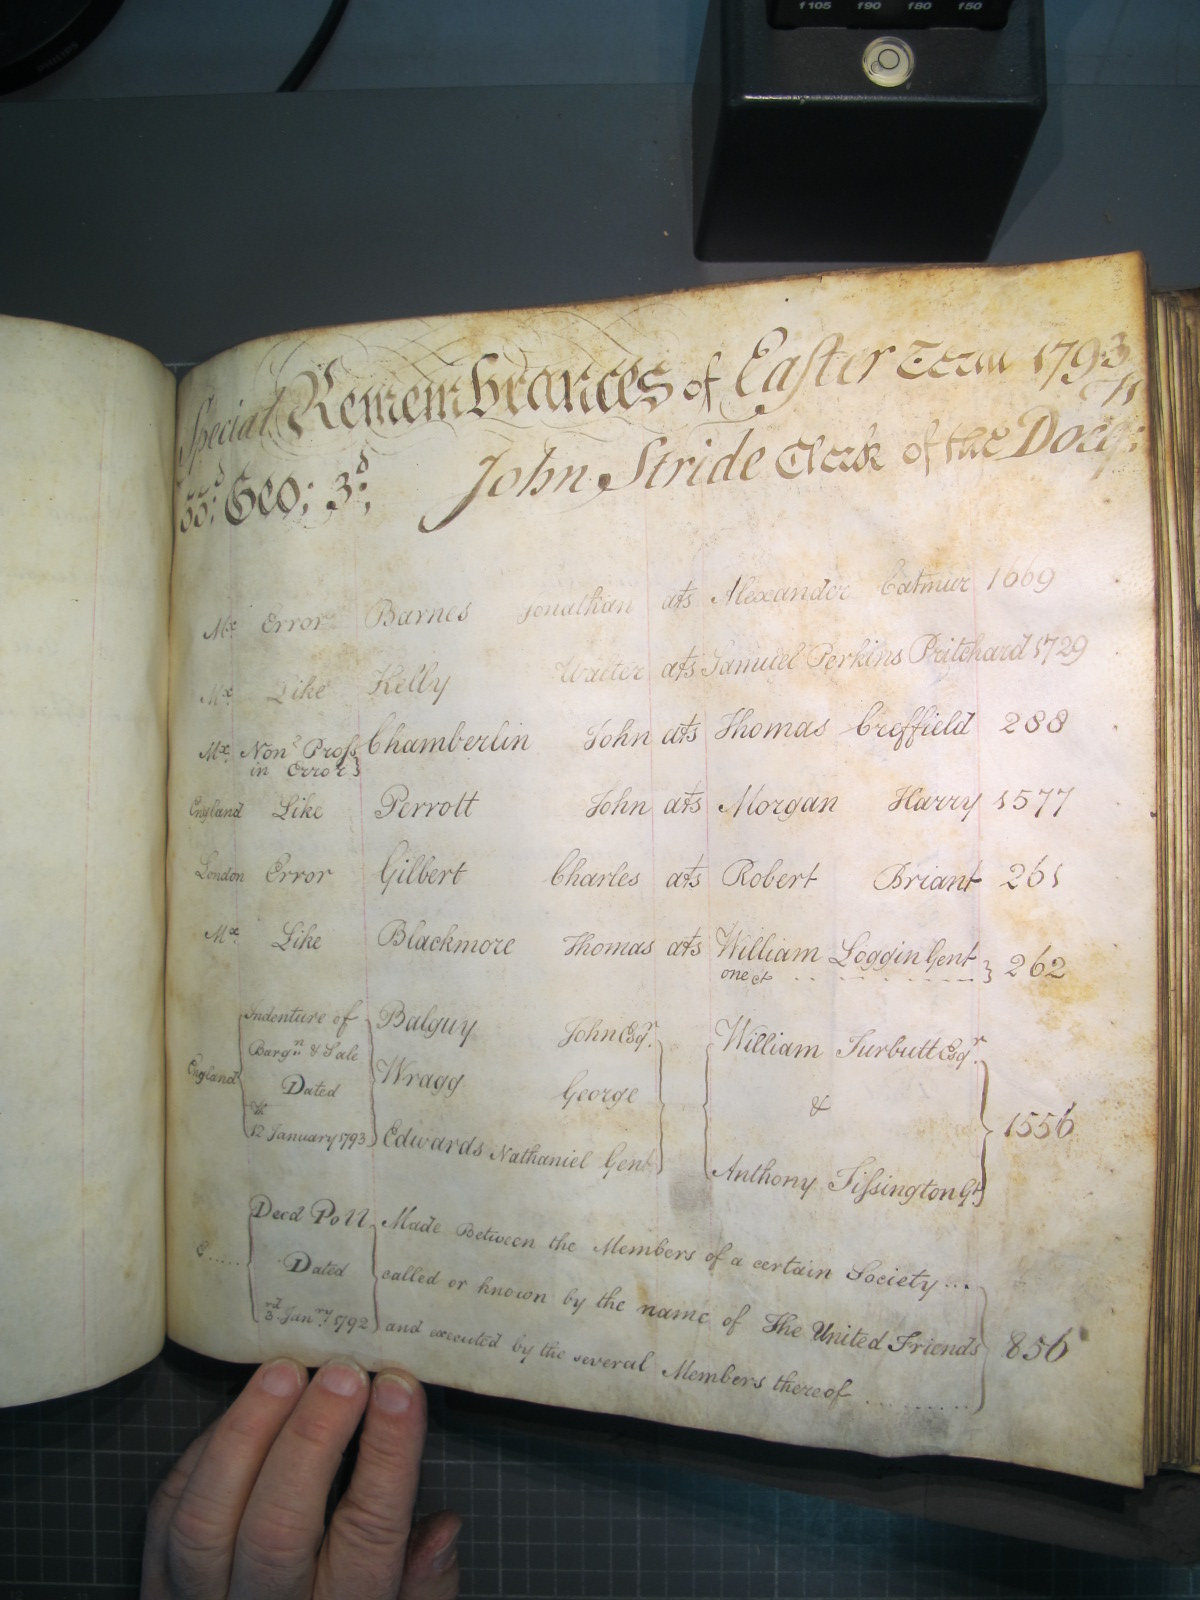 f105 f90 f80 f50
PHILIPS
Special Remembrances of Easter Term 1793
33:d Geo; 3:d; John Stride Clerk of the Docq:ts
Mx Error Barnes Jonathan ats Alexander Catmur 1669
Mx Like Kelly Walter ats Samuel Perkins Pritchard 1729
Mx Non: Pross in Error Chamberlin John ats Thomas Creffield 288
England Like Perrott John ats Morgan Harry 1577
London Error Gilbert Charles ats Robert Briant 261
Mx Like Blackmore Thomas ats William Loggin Gent 262
one &c
England
Indenture of
Barg:n & Sale
Dated
12th January 1793
Balguy John Esq:r
Wragg George
Edwards Nathaniel Gent
William Turbutt Esq:r
&
Anthony Tissington Gt
1556
E.....
Deed Poll
Dated
3rd Jan:ry 1792
Made Between the Members of a certain Society...
called or known by the name of The United Friends
and executed by the several Members thereof ..........
856